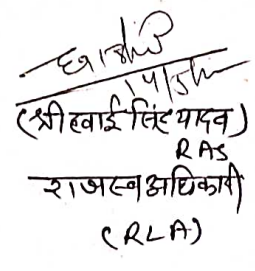 (श्री हवाई सिंह यादव)
RAS
राजस्व अधिकारी
(RLA)